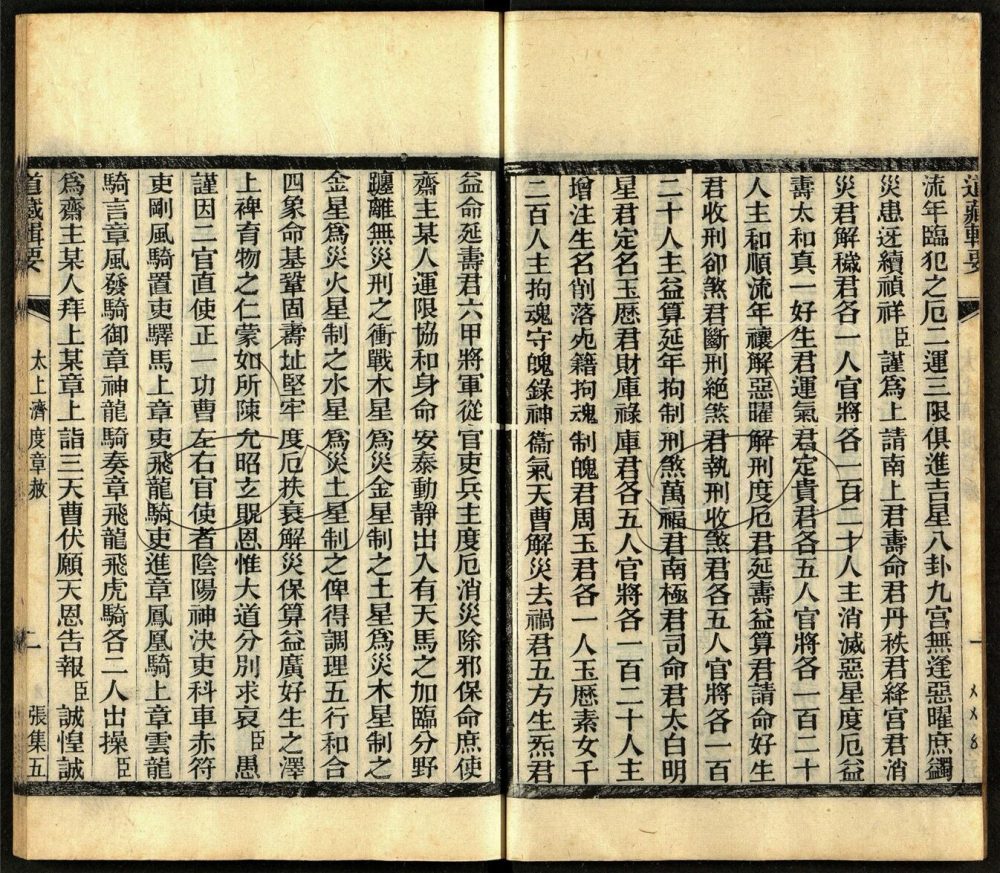 道藏輯要
流年臨犯之厄二運三限俱進吉星八卦九宮無逢惡曜庶蠲
災患迓續禎祥臣 謹爲上請南上君壽命君丹秩君絳宮君消
災君解穢君各一人官將各一百二十人主消滅惡星度厄益
壽太和真一好生君運氣君定貴君各五人官將各一百二十
人主和順流年禳解惡曜解刑度厄君延壽益算君請命好生
君收刑卻煞君斷刑絕煞君執刑收煞君各五人官將各一百
二十人主益算延年拘制刑煞萬福君南極君司命君太白明
星君定名玉曆君財庫祿庫君各五人官將各一百二十人主
增注生名削落死籍拘魂制魄君周玉君各一人玉曆素女千
二百人主拘魂守魄錄神衞氣天曹解災去禍君五方生炁君
益命延壽君六甲將軍從官吏兵主度厄消災除邪保命庶使
齋主某人運限協和身命安泰動靜出入有天馬之加臨分野
躔離無災刑之衝戰木星爲災金星制之土星爲災木星制之
金星爲災火星制之水星爲災土星制之俾得調理五行和合
四象命基鞏固壽址堅牢度厄扶衰解災保算益廣好生之澤
上裨育物之仁蒙如所陳允昭玄貺恩惟大道分別求哀臣 愚
謹因二官直使正一功曹左右官使者陰陽神決吏科車赤符
吏剛風騎置吏驛馬上章吏飛龍騎吏進章鳳凰騎上章雲龍
騎言章風發騎御章神龍騎奏章飛龍飛虎騎各二人出操臣
爲齋主某人拜上某章上詣三天曹伏願天恩告報臣 誠惶誠
道藏輯要
太上濟度章赦
二
張集五